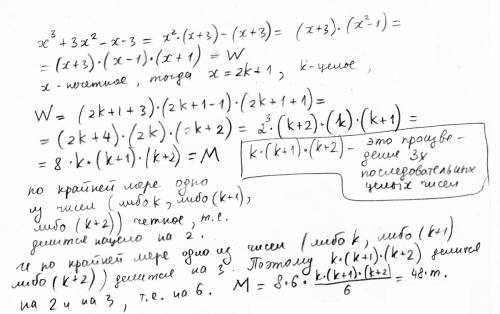 x³ + 3x² - x - 3 = x²·(x+3) - (x+3) = (x+3)·(x²-1) =
= (x+3)·(x-1)·(x+1) = W
x - нечетное, тогда x = 2k+1, k - целое,
W = (2k+1+3)·(2k+1-1)·(2k+1+1) =
= (2k+4)·(2k)·(2k+2) = 2³·(k+2)·(k)·(k+1) =
= 8·k·(k+1)·(k+2) = M
k·(k+1)·(k+2) - это произве-
дение 3х
последовательных
целых чисел
по крайней мере одно
из чисел (либо k, либо (k+1),
либо (k+2)) четное, т.е.
делится нацело на 2.
и по крайней мере одно из чисел (либо k, либо (k+1)
либо (k+2)) делится на 3. Поэтому k·(k+1)·(k+2) делится
на 2 и на 3, т.е. на 6. M = 8·6·k·(k+1)·(k+2)/6 = 48·m.